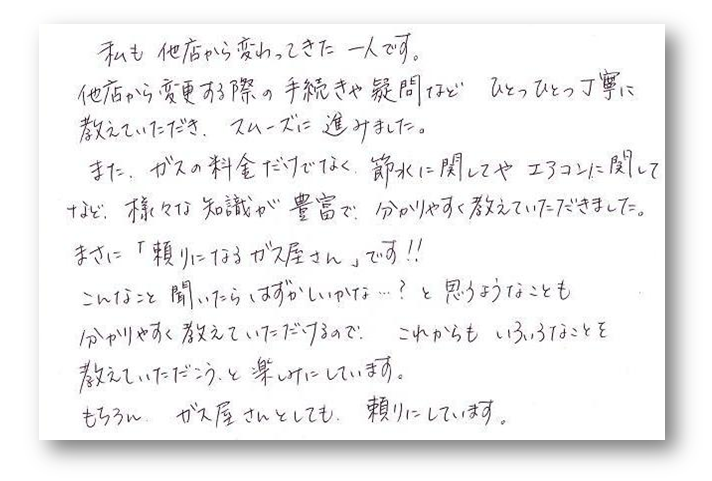 私も 他店から変わってきた 一人です。
他店から変更する際の 手続きや 疑問など ひとつひとつ丁寧に
教えていただき、スムーズに 進みました。
また、ガスの料金だけでなく、節水に関してや エアコンに関して
など、様々な 知識が 豊富で、分かりやすく教えていただきました。
まさに「頼りになるガス屋さん」です!!
こんなこと 聞いたら はずかしいかな…? と 思うようなことも
分かりやすく 教えていただけるので、これからも いろいろなことを
教えていただこう、と 楽しみにしています。
もちろん、ガス屋さんとしても、頼りにしています。